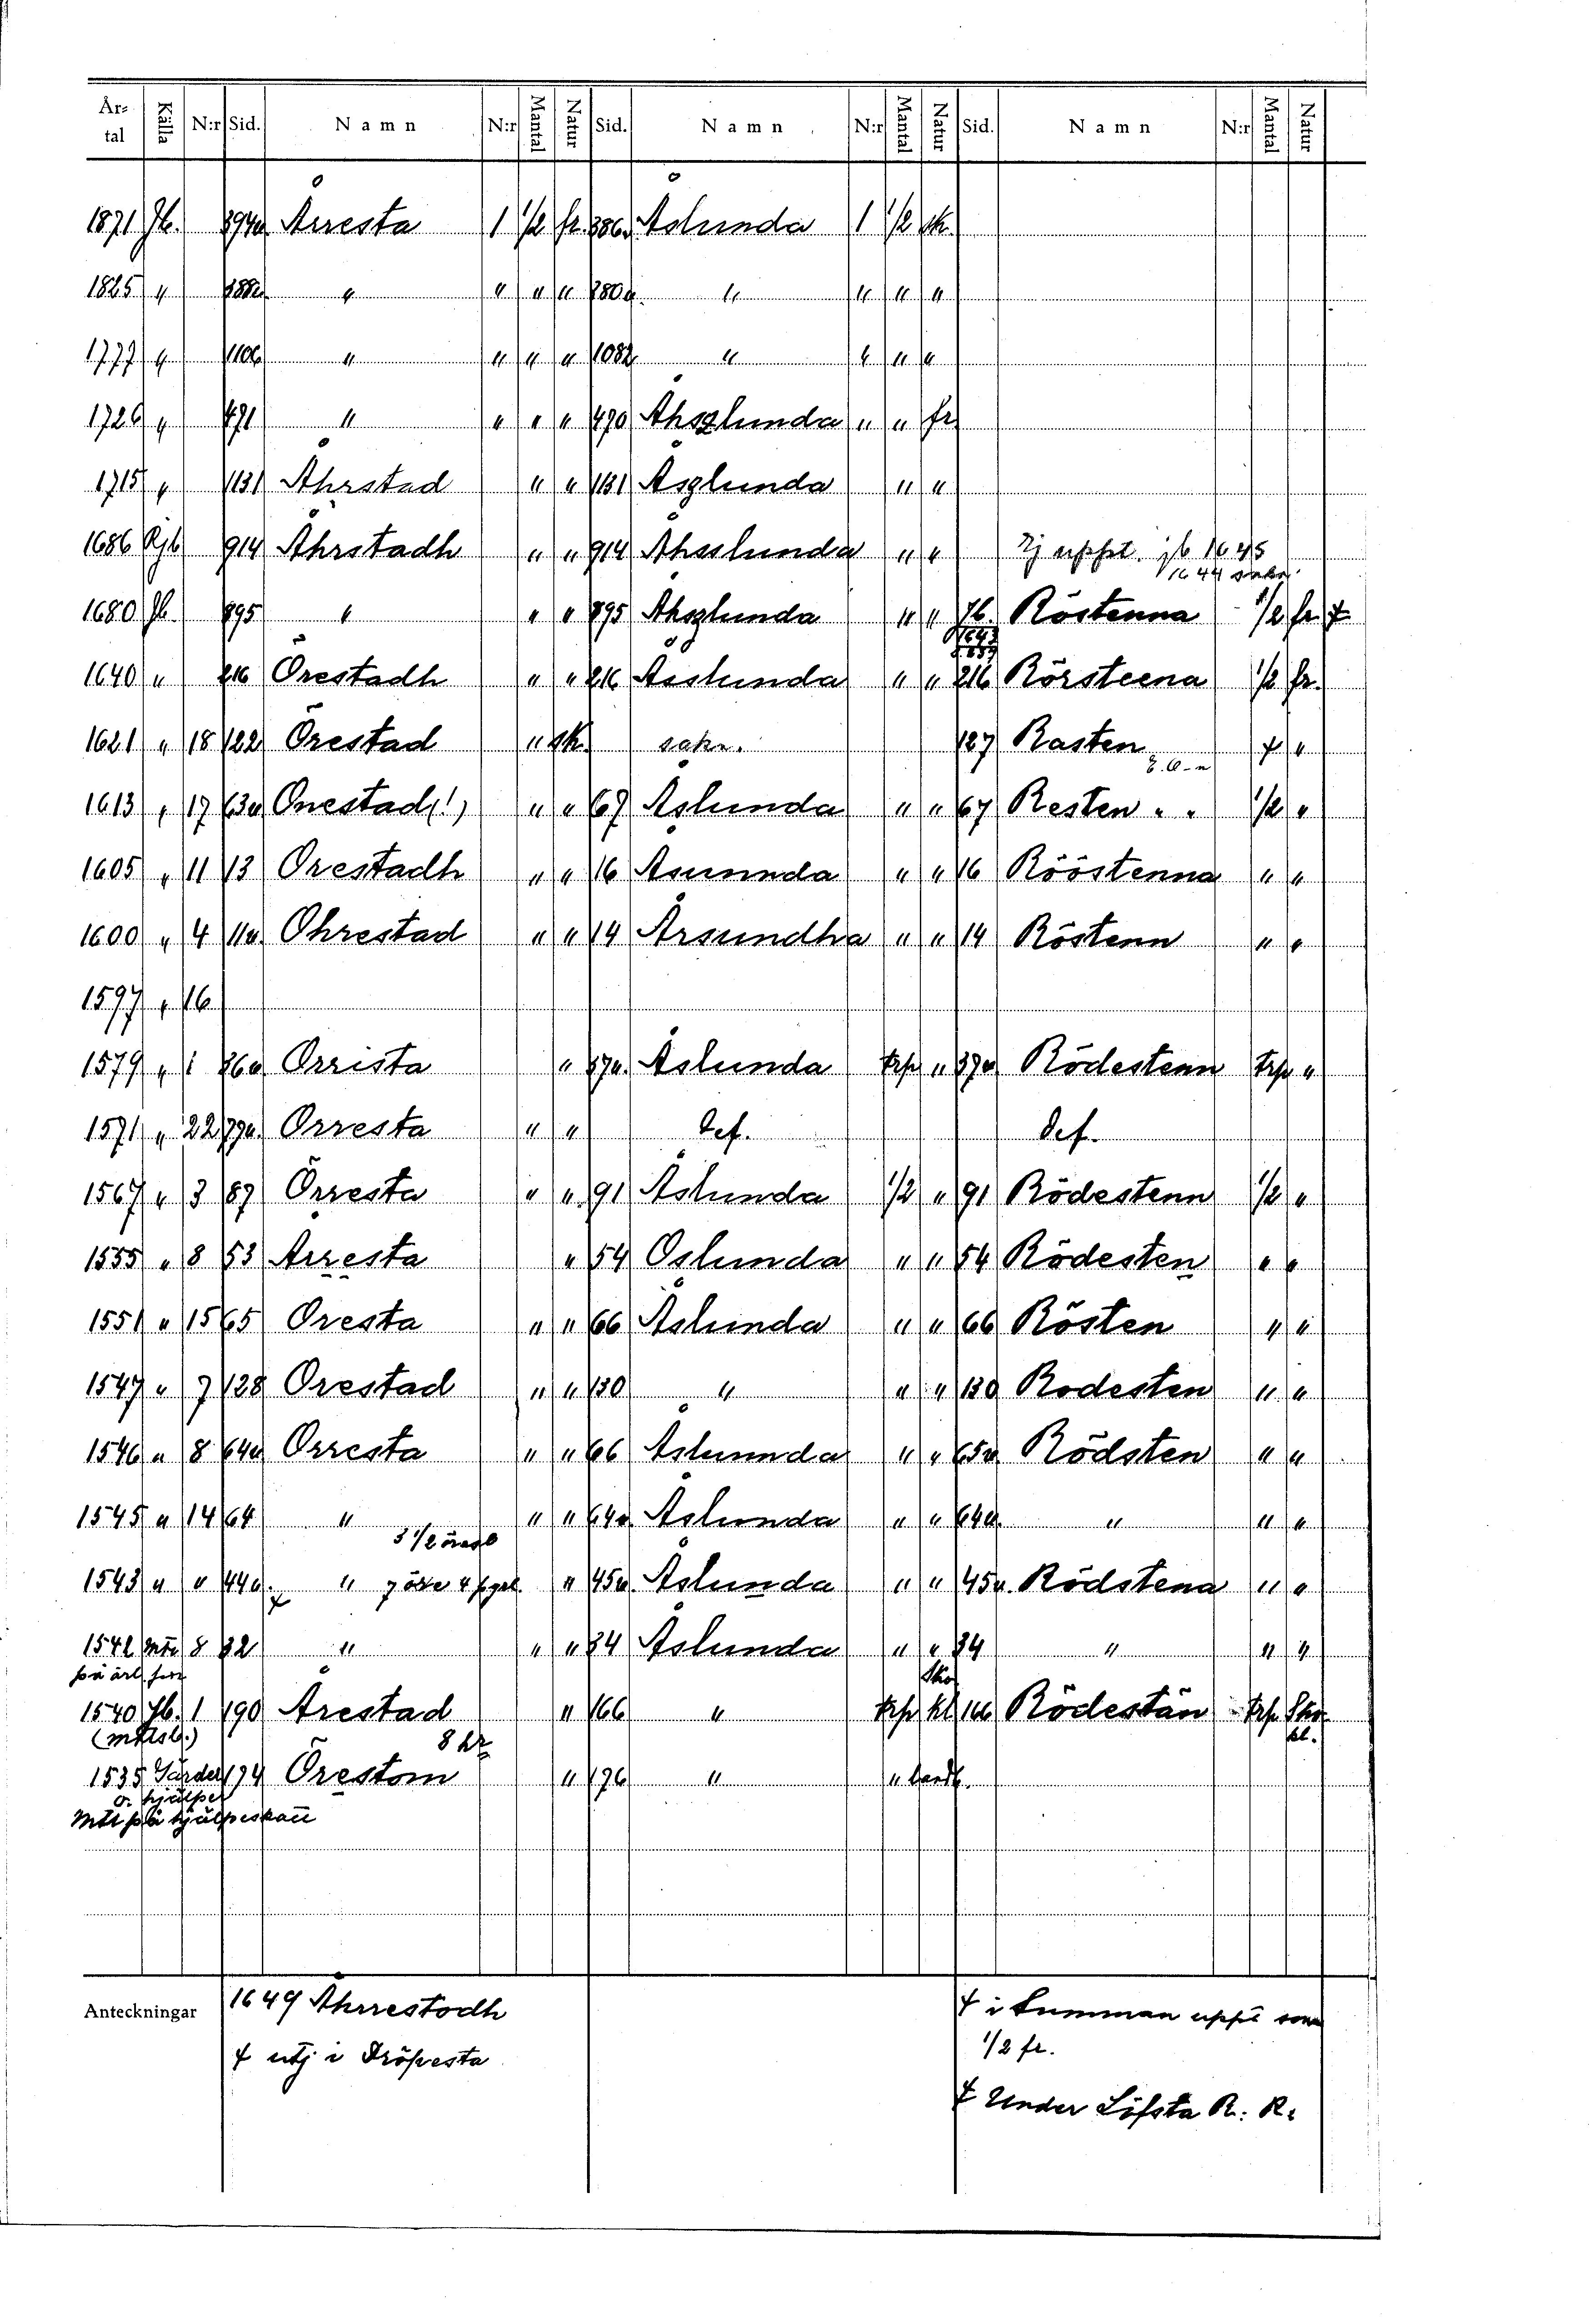 År-tal Källa N:r Sid. Namn N:r Mantal Natur Sid. Namn N:r Mantal Natur Sid. Namn N:r Mantal Natur
1871 Jb. 394v Årresta 1 1/2 fr. 386v Åslunda 1 1/2 sk.
1825 " 388v " " " " 380v " " " "
1777 " 1106 " " " " 1082 " " " "
1726 " 471 " " " " 470 Åhszlunda " " fr
1715 " 1131 Åhrstad " " 1131 Åszlunda " "
1686 Rjb 914 Åhrstadh " " 914 Åhsslunda " " Ej uppt. jb 1645
1644 sakn.
1680 Jb. 895 " " " 895 Åhszlunda " " Jb. Röstenna 1/2 fr. ‡
1643
1640 " 216 Örestadh " " 216 Åsslunda " " 216 Rörsteena 1/2 fr.
1621 " 18 122 Örestad " sk. sakn. 127 Rasten ‡ "
1613 " 17 63v Onestad (!) " " 67 Åslunda " " 67 Resten " " 1/2 "
1605 " 11 13 Orestadh " " 16 Asunnda " " 16 Rööstenna " "
1600 " 4 11v. Ohrestad " " 14 Arsundha " " 14 Röstenn " "
1597 " 16
1579 " 1 36v Orrista " 37v. Åslunda trp " 37v Rödestenn trp "
1571 " 22 79v. Orresta " " Def. Def.
1567 " 3 87 Örresta " " 91 Åslunda 1/2 " 91 Rödestenn 1/2 "
1555 " 8 53 Arresta " 54 Oslunda " " 54 Rödesten " "
1551 " 15 65 Oresta " " 66 Åslunda " " 66 Rösten " "
1547 " 7 128 Orestad " " 130 " " " 130 Rodesten " "
1546 " 8 64v Orresta " " 66 Åslunnda " " 65v Rödsten " "
1545 " 14 64 " " " 64v Åslunda " " 64v. " " "
3 1/2 öresl
1543 " " 44v. " 7 öre 4 pgl. " 45v. Åslunda " " 45v. Rödstena " "
‡
1542 Mtl 8 32 " " " 34 Åslunda " " 34 " " "
på årl.
1540 Jb. 1 190 Årestad " 166 " trp Sko kl 166 Rödestän trp Sko kl.
(mtlsl.)
8 hr
1535 Gärder 174 Örestom " 176 " " landb.
o. hjälper
Mtl på hjälpeskatt
Anteckningar
1649 Åhrrestodh
‡ utj i Dröpesta
‡ i summan uppt som
1/2 fr.
‡ Under Löfsta R: R: